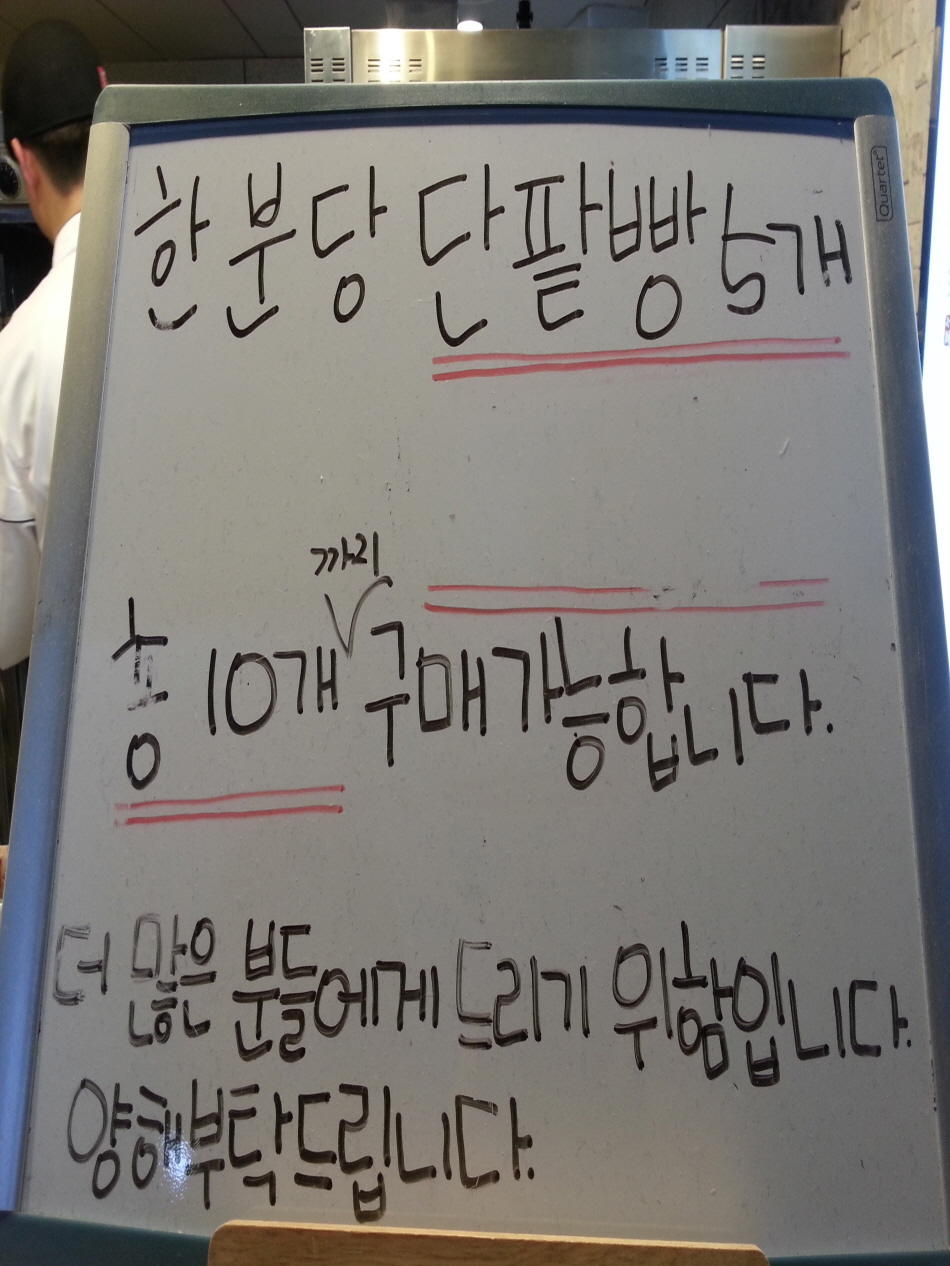 Quartet
한분당 단팥빵 5개
까지
총 10개 구매가능합니다.
더 많은 분들에게 드리기 위함입니다.
양해부탁드립니다.